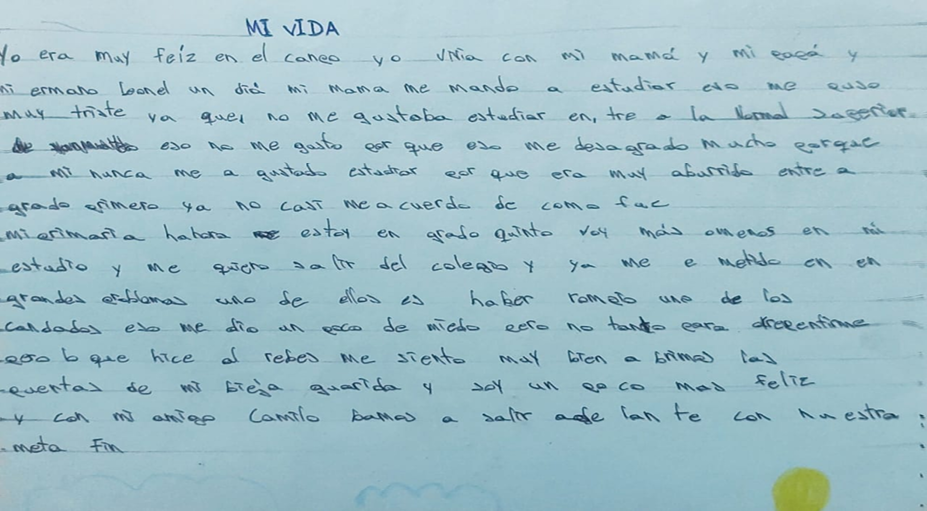 MI VIDA
Yo era muy feíz en el canpo yo vivia con mi mamá y mi papá y
mi ermano Leonel un diá mi mama me mando a estudiar eso me puso
muy triste ya que, no me gustaba estudiar en, tre a la Normal superior
de eso no me gusto por que eso me desagrado mucho porque
a mi nunca me a gustado estudiar por que era muy aburrido entre a
grado primero ya no casi me acuerdo de como fue
mi primaria hahora estoy en grado quinto voy más omenos en mi
estudio y me quiero salir del colegio y ya me e metido en en
grandes problemas uno de ellos es haber rompio uno de los
candados eso me dio un poco de miedo pero no tanto para
pero lo que hice al rebes me siento muy bien a brimos las
puertas de mi bieja guarida y soy un po co mas feliz
y con mi amigo Camilo bamos a salir ade lan te con nuestra
meta Fin